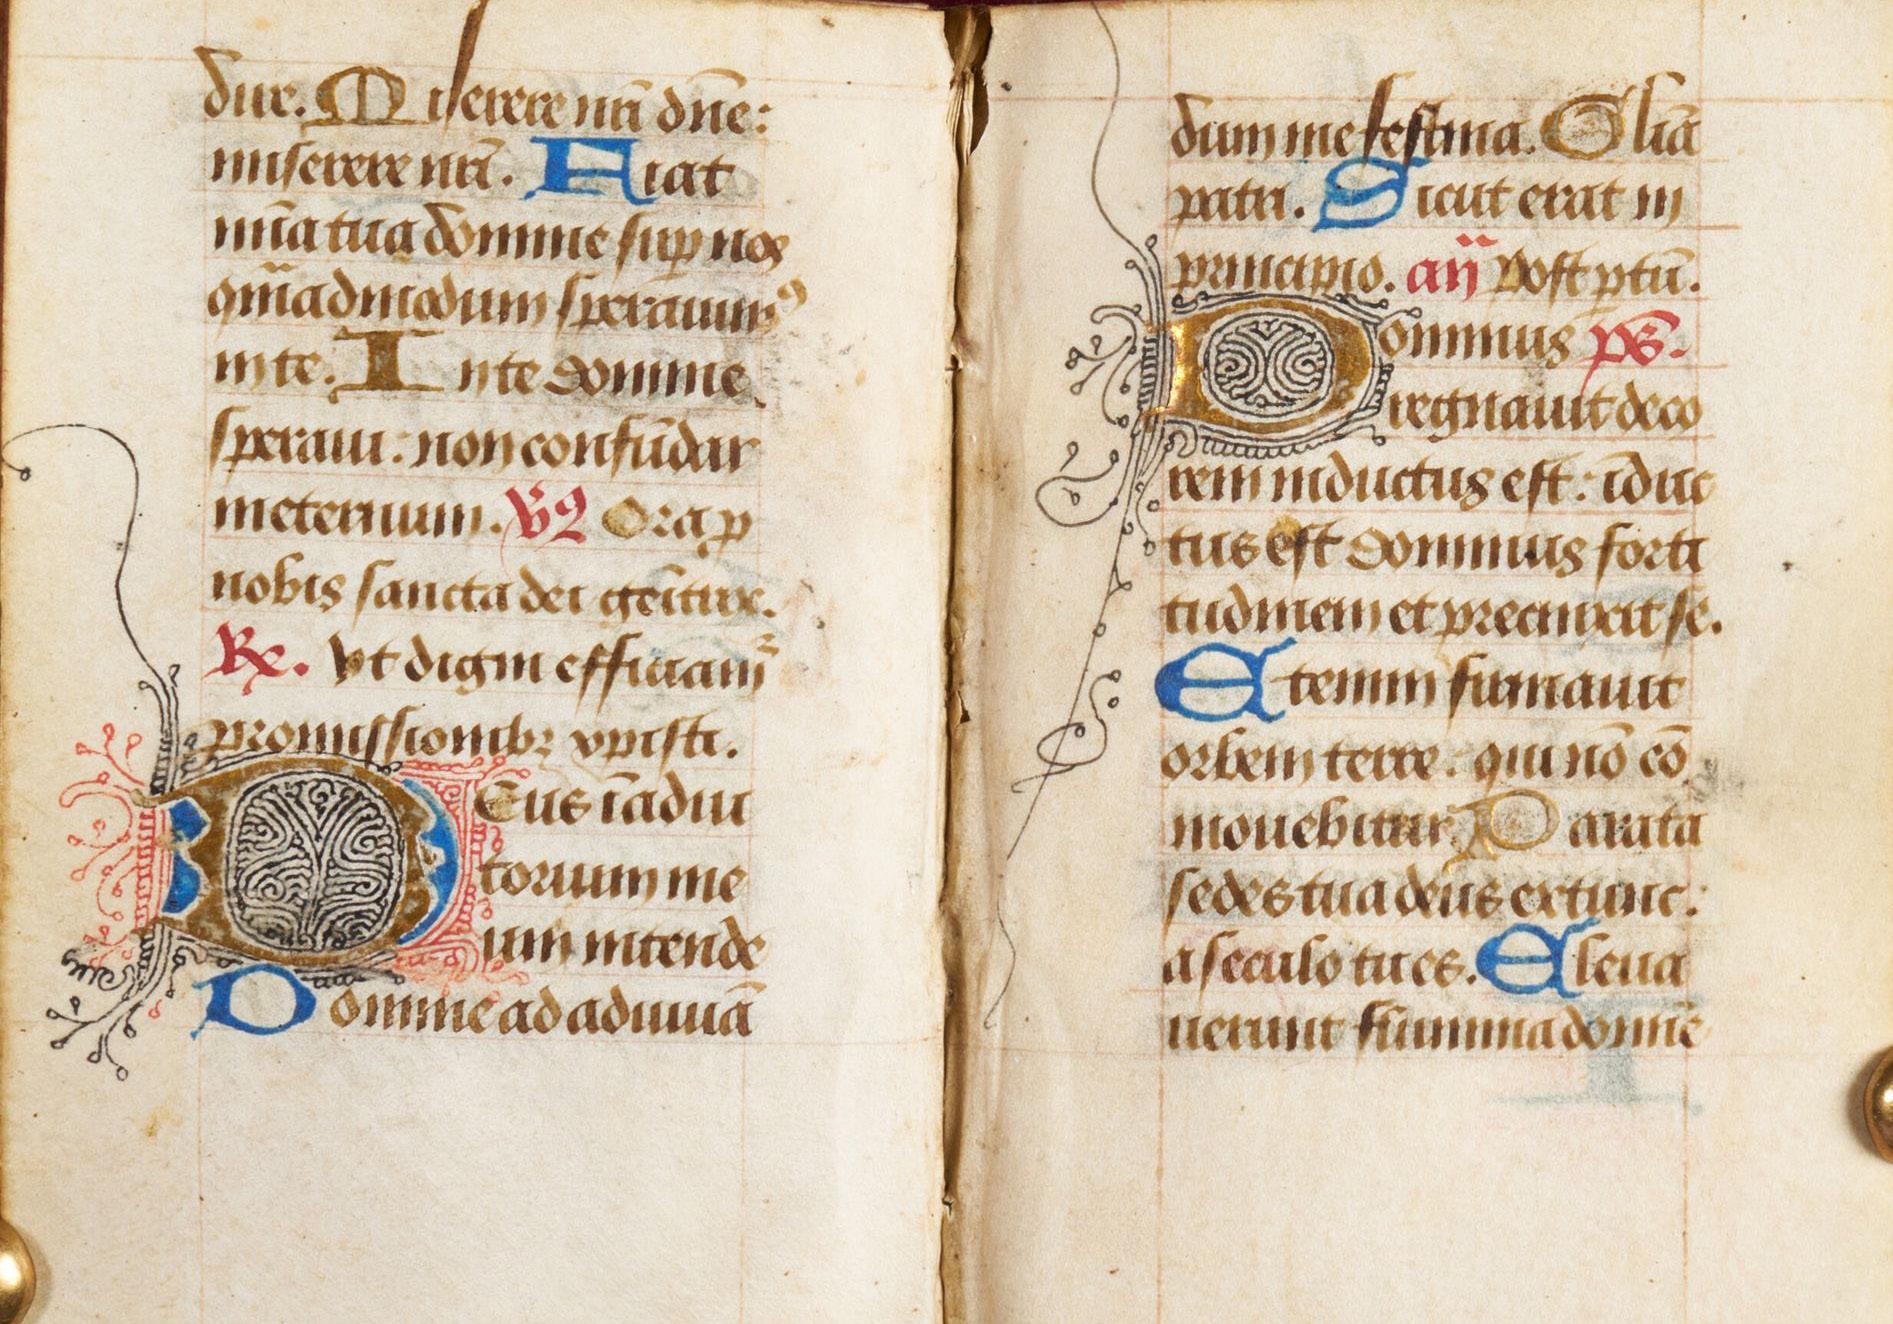 dire. Miserere nr̄i dn̄e:
miserere nr̄i. Fiat
mīa tua domine sup nos
qm̄admodum sperauim⁹
in te. In te domine
speraui: non confūdar
in eternum. v̄s Ora p
nobis sancta dei geītrix.
Rx. vt digni efficiam̄
promissionibꝫ xpisti.
Deus ī adiu
torium me
um intende
Domine ad adiuuā
dum me festina. Gl̄ia
patri. Sicut erat in
principio. an̄ Post ptū.
Dominus ps̄.
regnauit deco
rem inductus est: īduc
tus est dominus forti
tudinem et precinxit se.
Etenim firmauit
orbem terre: qui nō cō
mouebitur Parata
sedes tua deus extunc:
a seculo tu es. Eleua
uerunt flumina domīe